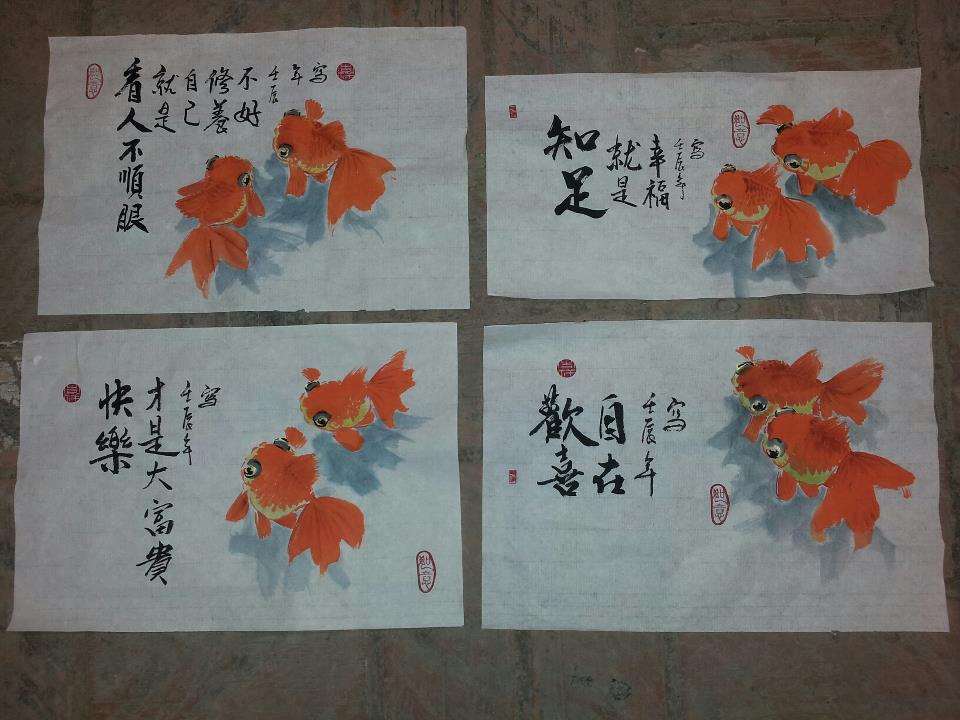 看人不順眼
就是
自己
修養
不好
壬辰
年
寫
知足
就是
幸福
壬辰年
寫
如意
快樂
才是大富貴
壬辰年
寫
如意
歡喜
自在
壬辰年
寫
如意